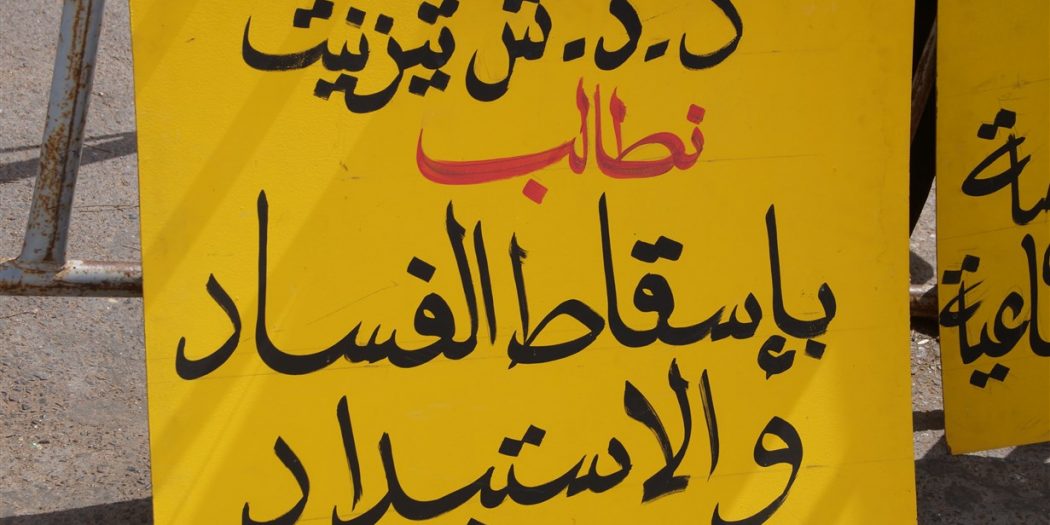 د.د.ش تيزنيت
نطالب
بإسقاط الفساد
والاستبداد